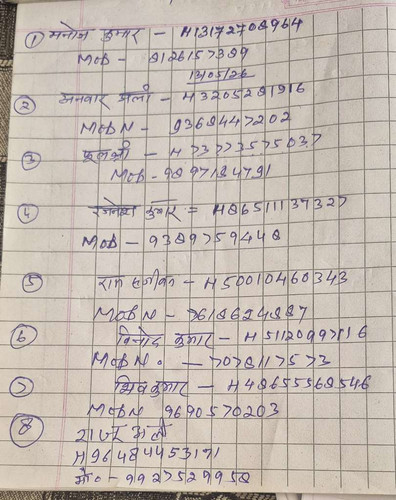 ① मनोज कुमार - H13172708964
MOB - 8126157389
13/05/26
② अनवार अली - H3205281916
MOB N - 9368447202
③ फूलश्री - H73773575037
MOB - 9897184791
④ कुमार = H86511137327
MOB - 9389759448
⑤ राम - H50010460343
MOB N - 7618624887
⑥ विनोद कुमार - H51120997816
MOB No - 7078117573
⑦ शिव कुमार - H48655568546
MOB N 9690570203
⑧ अली
H96484453171
मो० - 9927529958